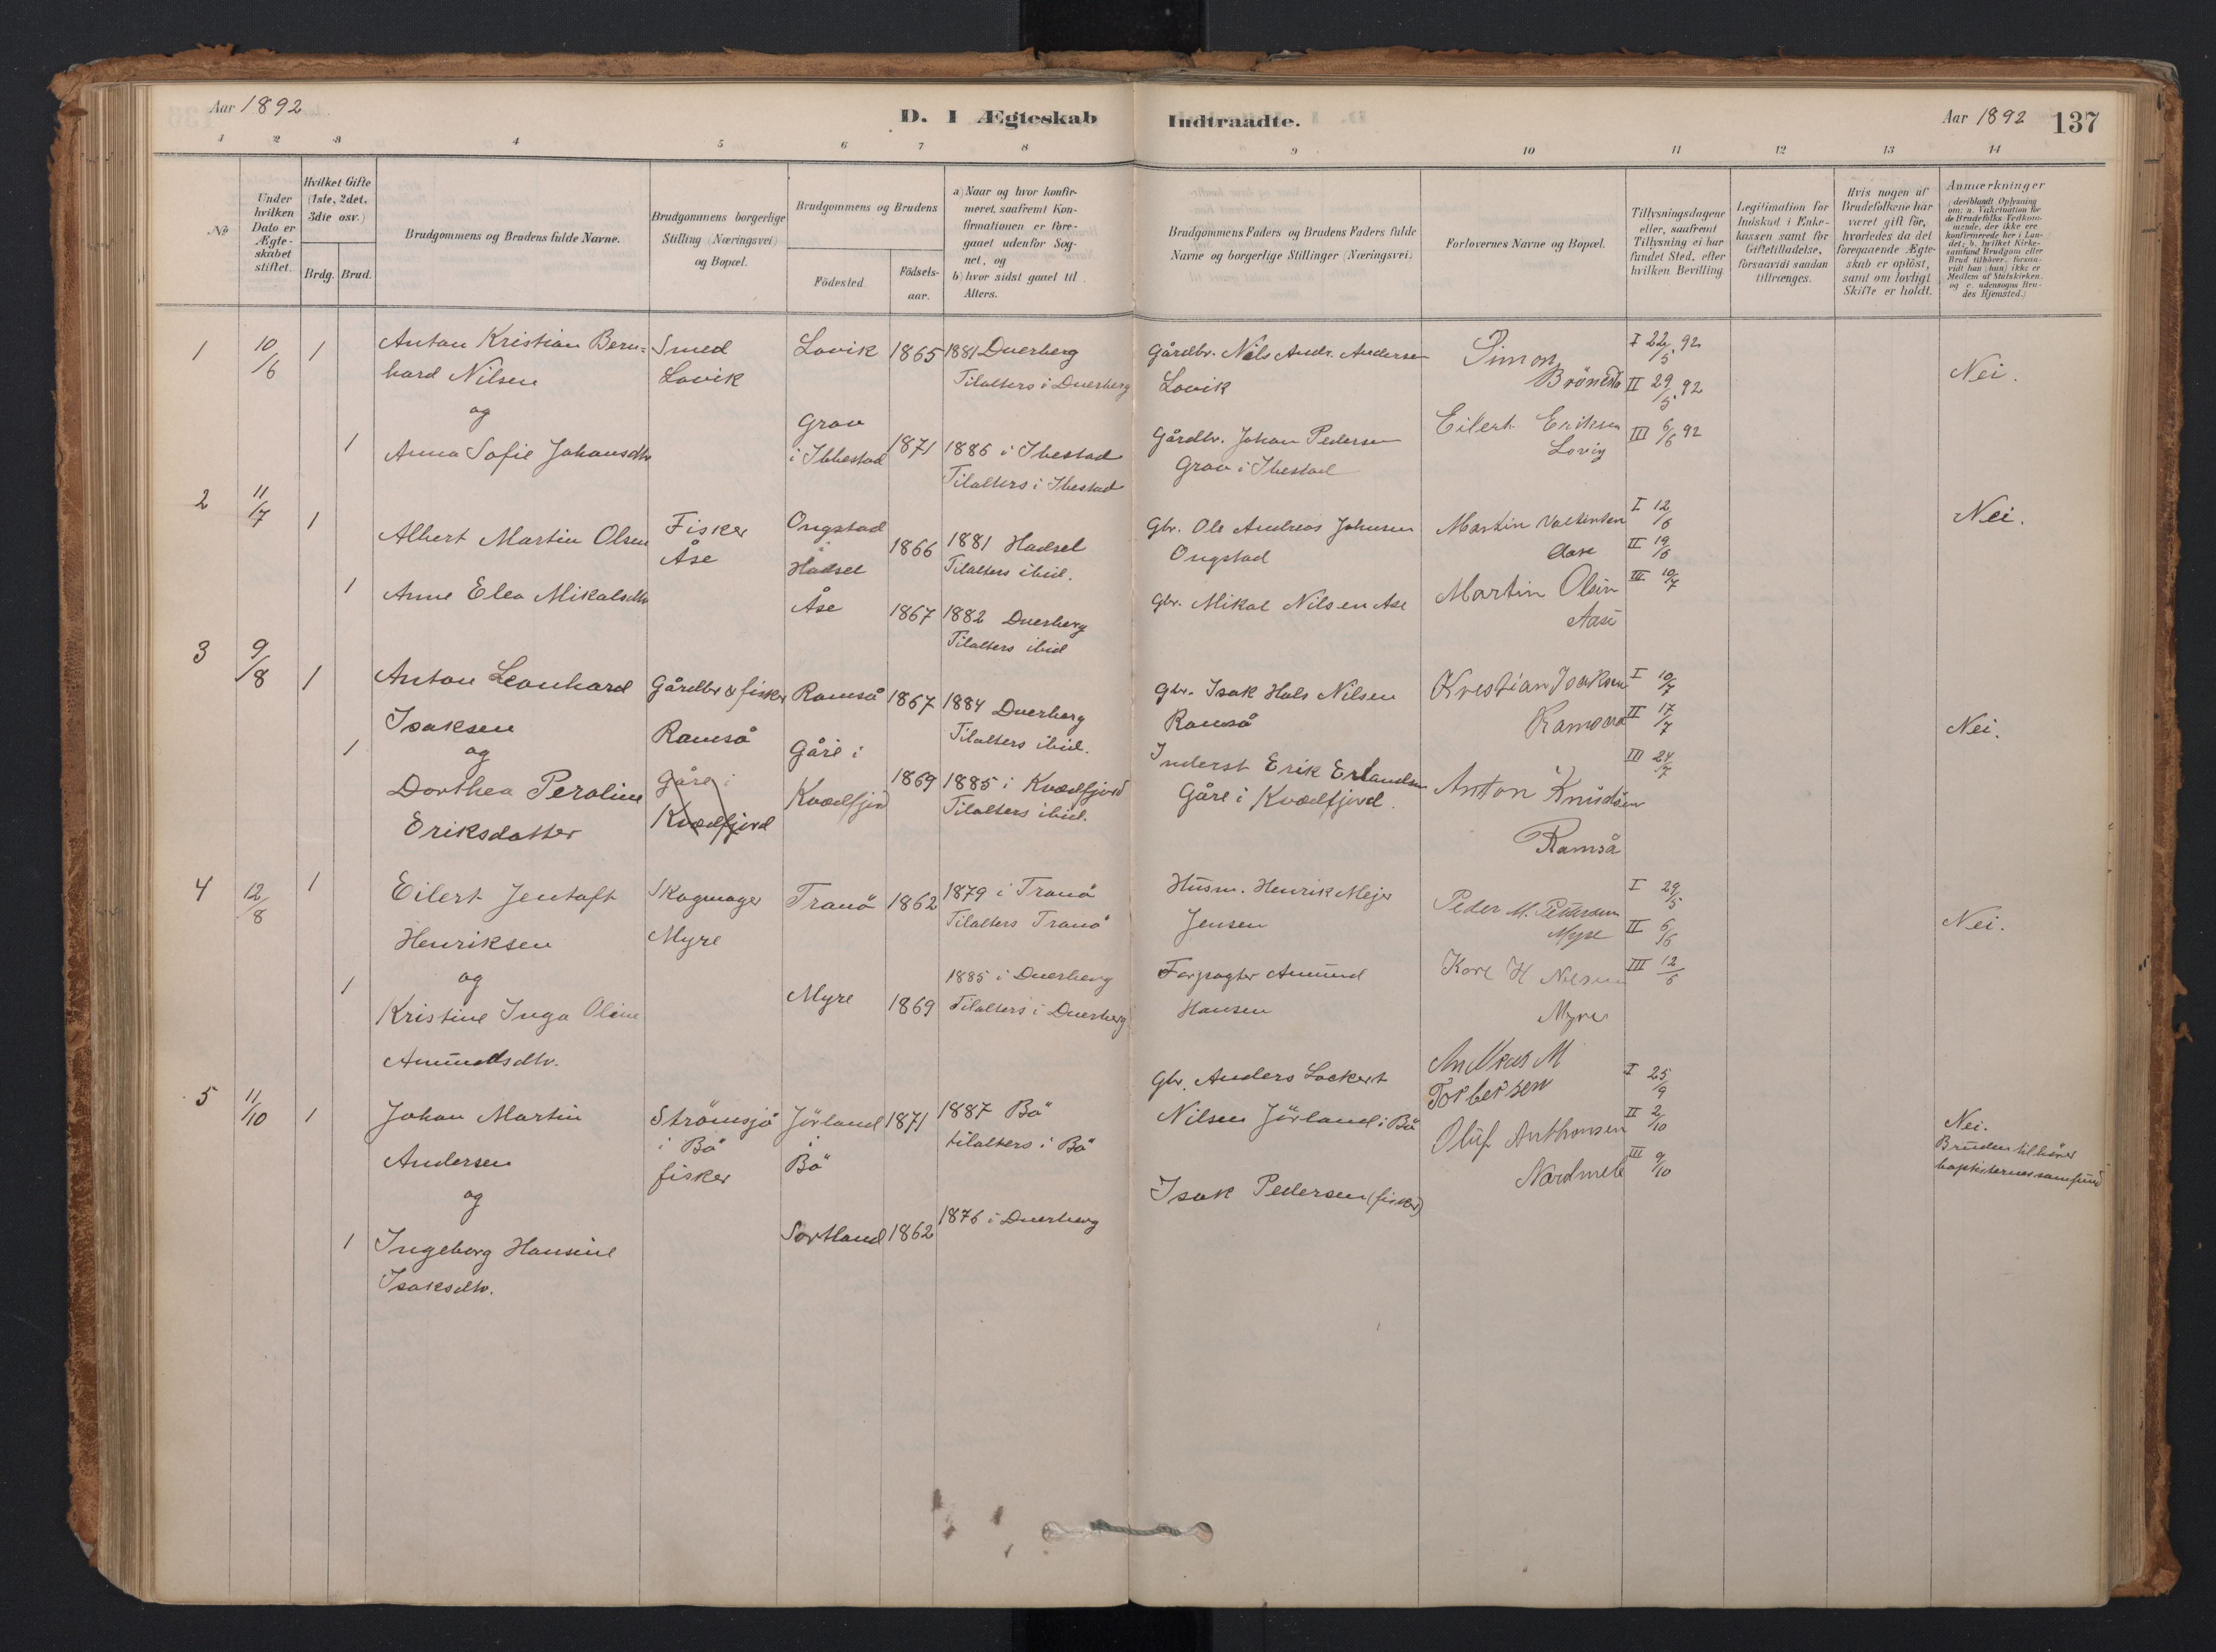 Aar 1892
D. I Ægteskab
Indtraadte.
Aar 1892 137
1 2 3 4 5 6 7 8 9 10 11 12 13 14
No
Under hvilken Dato er Ægteskabet stiftet.
Hvilket Gifte (1ste, 2det, 3die osv.)
Brdg. Brud.
Brudgommens og Brudens fulde Navne.
Brudgommens borgerlige Stilling (Næringsvei) og Bopæl.
Brudgommens og Brudens
Födested.
Födsels-aar.
a) Naar og hvor konfirmeret, saafremt Konfirmationen er foregaaet udenfor Sognet, og
b) hvor sidst gaaet til Alters.
Brudgommens Faders og Brudens Faders fulde Navne og borgerlige Stillinger (Næringsvei)
Forlovernes Navne og Bopæl.
Tillysningsdagene eller, saafremt Tillysning ei har fundet Sted, efter hvilken Bevilling.
Legitimation for Indskud i Enkekassen samt for Giftetilladelse, forsaavidt saadan tiltrænges.
Hvis nogen af Brudefolkene har været gift för, hvorledes da det foregaaende Ægteskab er oplöst, samt om lovligt Skifte er holdt.
Anmærkninger
(deriblandt Oplysning om: a. Vakcination for de Brudefolks Vedkommende, der ikke ere konfirmerede her i Landet; b. hvilket Kirkesamfund Brudgom eller Brud tilhörer, forsaavidt han (hun) ikke er Medlem af Statskirken, og c. udensogns Brudes Hjemsted.)
1 10/6 1
Anton Kristian Bern=
hard Nilsen
og
1 Anna Sofie Johansdtr
Smed
Lovik
Lovik 1865
1881 Dverberg
Tilalters i Dverberg
Grov
i Ibbestad 1871
1886 i Ibestad
Tilalters i Ibestad
Gårdbr. Nils Andr. Andersen
Lovik
Gårdbr. Johan Pedersen
Grov i Ibestad
Simon
Eilert Eriksen
Lovig
I 22/5 92
II 29/5 92
III 6/6 92
Nei.
2 11/7 1
Albert Martin Olsen
1 Anne Elea Mikalsdtr
Fisker
Åse
Ongstad
i
Hadsel 1866
1881 Hadsel
Tilalters ibid.
Åse 1867
1882 Dverberg
Tilalters ibid
Gbr. Ole Andreas Johnsen
Ongstad
Gbr. Mikal Nilsen Åse
Martin
Aase
Martin Olsen
Aase
I 12/6
II 19/6
III 10/7
Nei.
3 9/8 1
Anton Leonhard
Isaksen
1 og
Dorthea Peroline
Eriksdatter
Gårdbr & fisker
Ramså
Gåre i
Kvædfjord
Ramså 1867
1884 Dverberg
Tilalters ibid.
Gåre i
Kvædfjord 1869
1885 i Kvædfjord
Tilalters ibid.
Gbr. Isak Hals Nilsen
Ramså
Inderst Erik Erlandsen
Gåre i Kvædfjord.
Kristian Isaksen
Ramsaa
Anton Knudsen
Ramså
I 10/7
II 17/7
III 24/7
Nei.
4 12/8 1
Eilert Jentoft
Henriksen
1 og
Kristine Inga Oline
Amundsdtr.
Skogmager
Myre
Tranö 1862
1879 i Tranö
Tilalters Tranö
Myre 1869
1885 i Dverberg
Tilalters i Dverberg
Husm. Henrik Mejer
Jensen
Forpagter Amund
Hansen
Peder M. Pettersen
Myre
Karl H Nilsen
Myre
I 29/5
II 6/6
III 12/6
Nei.
5 11/10 1
Johan Martin
Andersen
og
1 Ingeborg Hansine
Isaksdtr.
Strömsjö
i Bö
fisker
Jörland
i
Bö 1871
1887 Bö
tilalters i Bö
Sortland 1862
1876 i Dverberg
Gbr. Anders Lockert
Nilsen Jörland i Bö
Isak Pedersen (fisker)
Andreas M
Torbersen
Oluf Anthonsen
Nordmele
I 25/9
II 2/10
III 9/10
Nei.
Bruden tilhörer
baptisternes samfund